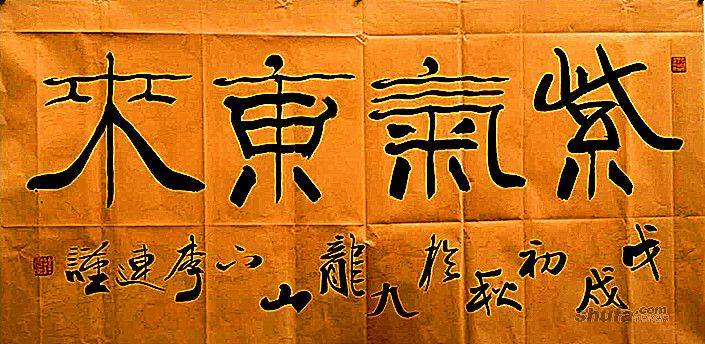 紫氣東來
戊戌初秋於九龍山下李連
shufa.com